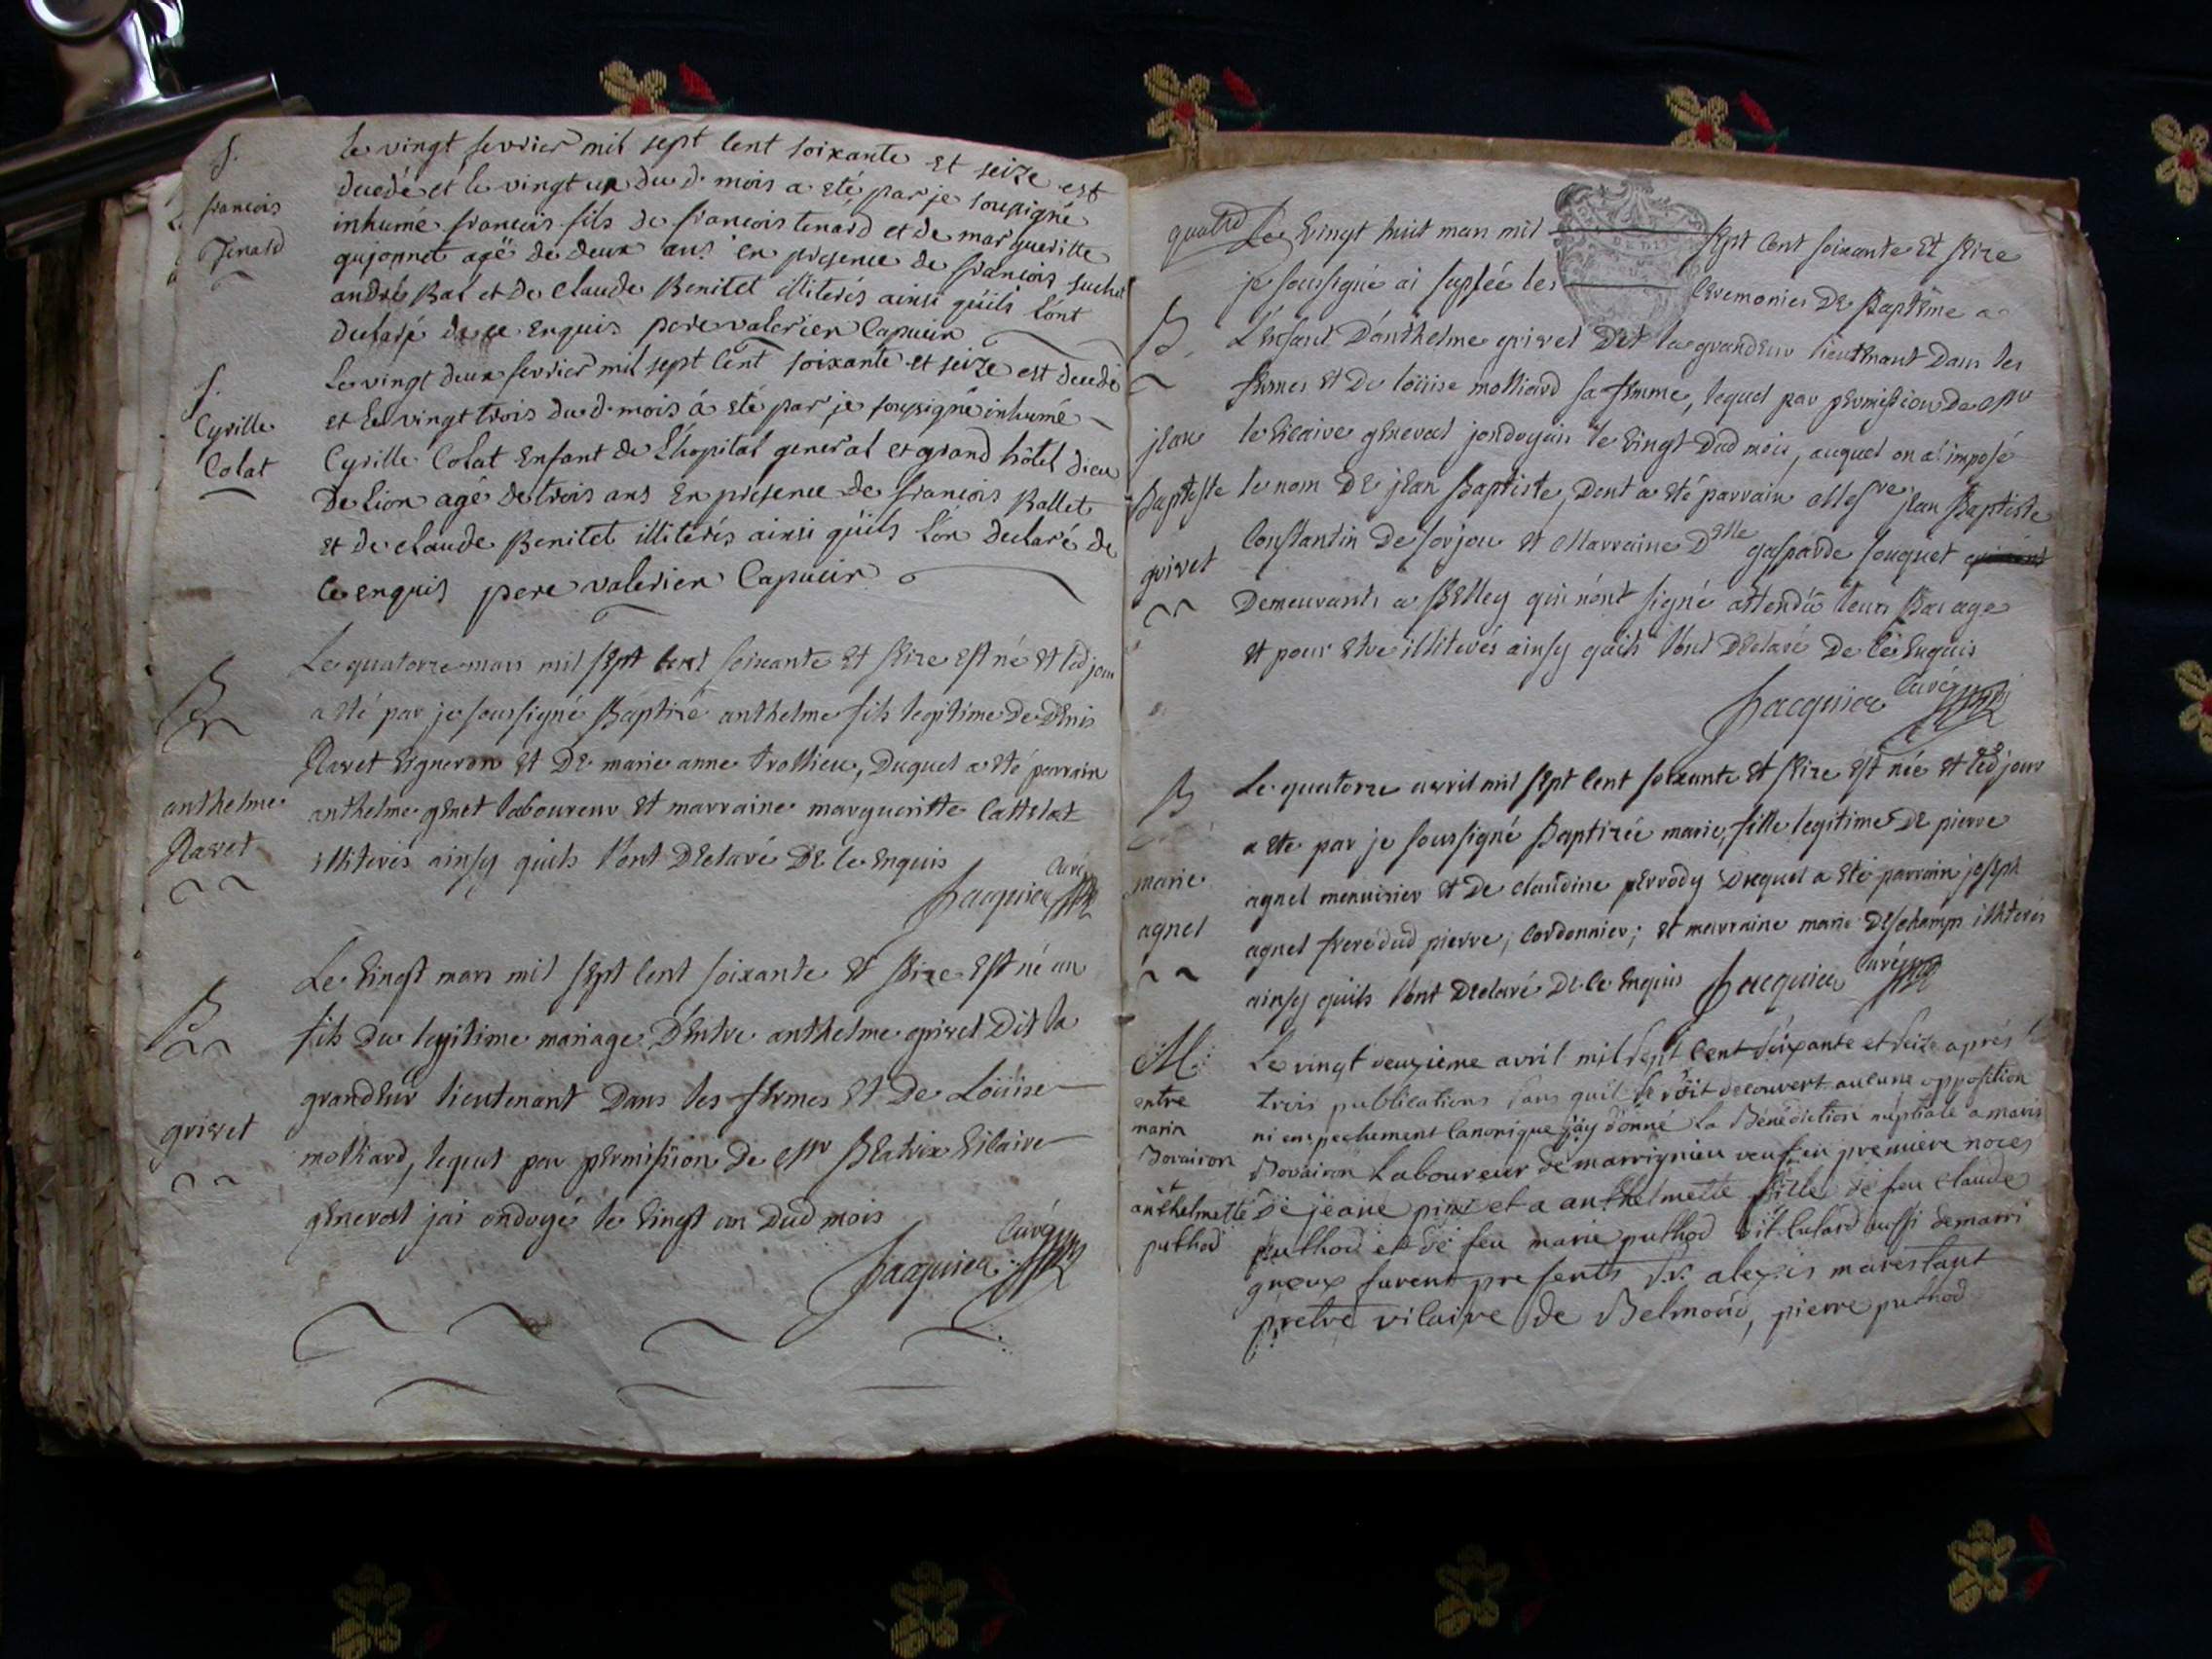 S.
françois
Tenard
le vingt fevrier mil sept cent soixante et seize est
decedé et le vingt un du d. mois a eté par je sousigné
inhume françois fils de françois tenard et de margueritte
gujonnet agé de deux ans en presence de françois suchet
andré Bal et de claude Benitet illiterés ainsi quils l'ont
declaré de ce enquis pere valerien Capucin
S.
Cyrille
Colat
Le vingt deux fevrier mil sept cent soixante et seize est decedé
et le vingt trois du d. mois á eté par je sousigné inhumé
Cyrille Colat enfant de l'hopital general et grand hôtel dieu
de Lion agé de trois ans en presence de françois Ballet
et de claude Benitet illiterés ainsi quils l'on declaré de
ce enquis pere valerien Capucin
B
anthelme
Ravet
Le quatorze mars mil sept cent soixante et seize est né et led jour
a eté par je soussigné Baptizé anthelme fils legitime de denis
Ravet vigneron et de marie anne trollieu, duquel a eté parrain
anthelme genet laboureur et marraine margueritte Cattelat
illiterés ainsy quils l'ont declaré de ce enquis
Jacquier Curé
B
grivet
Le vingt mars mil sept cent soixante et seize est né un
fils du legitime mariage d'entre anthelme grivet dit la
grandeur lieutenant dans les fermes et de Loüise
molliard, lequel par permission de Mr Beatrix vicaire
general jai ondoyé le vingt un dud mois
Jacquier Curé
quatre
Le vingt huit mars mil sept cent soixante et seize
je soussigné ai supleé les ceremonies de Baptême a
B
jean
Baptiste
grivet
L'enfant d'anthelme grivet dit la grandeur lieutenant dans les
fermes et de loüise molliard sa femme, lequel par permission de Mr
le vicaire general jondoyais le vingt dud mois, auquel on a imposé
le nom de jean Baptiste, dont a eté parrain Messre jean Baptiste
Constantin de sorjou et Marraine Delle gasparde souquet
demeurants a Belley qui n'ont signé attendu leurs bas age
et pour etre illiterés ainsy quils l'ont declaré de ce enquis
Jacquier Curé
B
marie
agnel
Le quatorze avril mil sept cent soixante et seize est née et led jour
a ete par je soussigné Baptizée marie, fille legitime de pierre
agnel menuisier et de claudine perrody duquel a eté parrain joseph
agnel frere dud pierre, cordonnier; et marraine marie deschamps illiterés
ainsy quils l'ont declaré de ce enquis Jacquier Curé
M.
entre
marin
Bovairon
et
anthelmette
puthod
Le vingt deuxieme avril mil sept cent soixante et seize aprés
trois publications sans quil se soit decouvert aucune opposition
ni empechement canonique j'ay donné la Bénédiction nuptiale a marin
Bovairon Laboureur de marrignieu veuf en premiere noces
de jeane pine et a anthelmette fille de feu claude
puthod et de feu marie puthod dit lutard aussi de marri
gneux furent presents Sr. alexis marestant
pretre vicaire de Belmond, pierre puthod